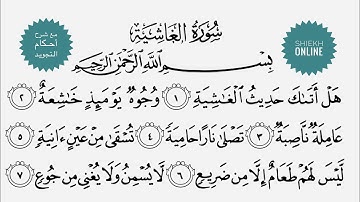 سُورَةُ الغَاشِيَةِ
مع شرح
أحكام
التجويد
SHIEKH
ONLINE
بِسْمِ اللَّهِ الرَّحْمَٰنِ الرَّحِيمِ
هَلْ أَتَىٰكَ حَدِيثُ ٱلْغَٰشِيَةِ ١ وُجُوهٌ يَوْمَئِذٍ خَٰشِعَةٌ ٢
عَامِلَةٌ نَّاصِبَةٌ ٣ تَصْلَىٰ نَارًا حَامِيَةً ٤ تُسْقَىٰ مِنْ عَيْنٍ ءَانِيَةٍ ٥
لَّيْسَ لَهُمْ طَعَامٌ إِلَّا مِن ضَرِيعٍ ٦ لَّا يُسْمِنُ وَلَا يُغْنِي مِن جُوعٍ ٧